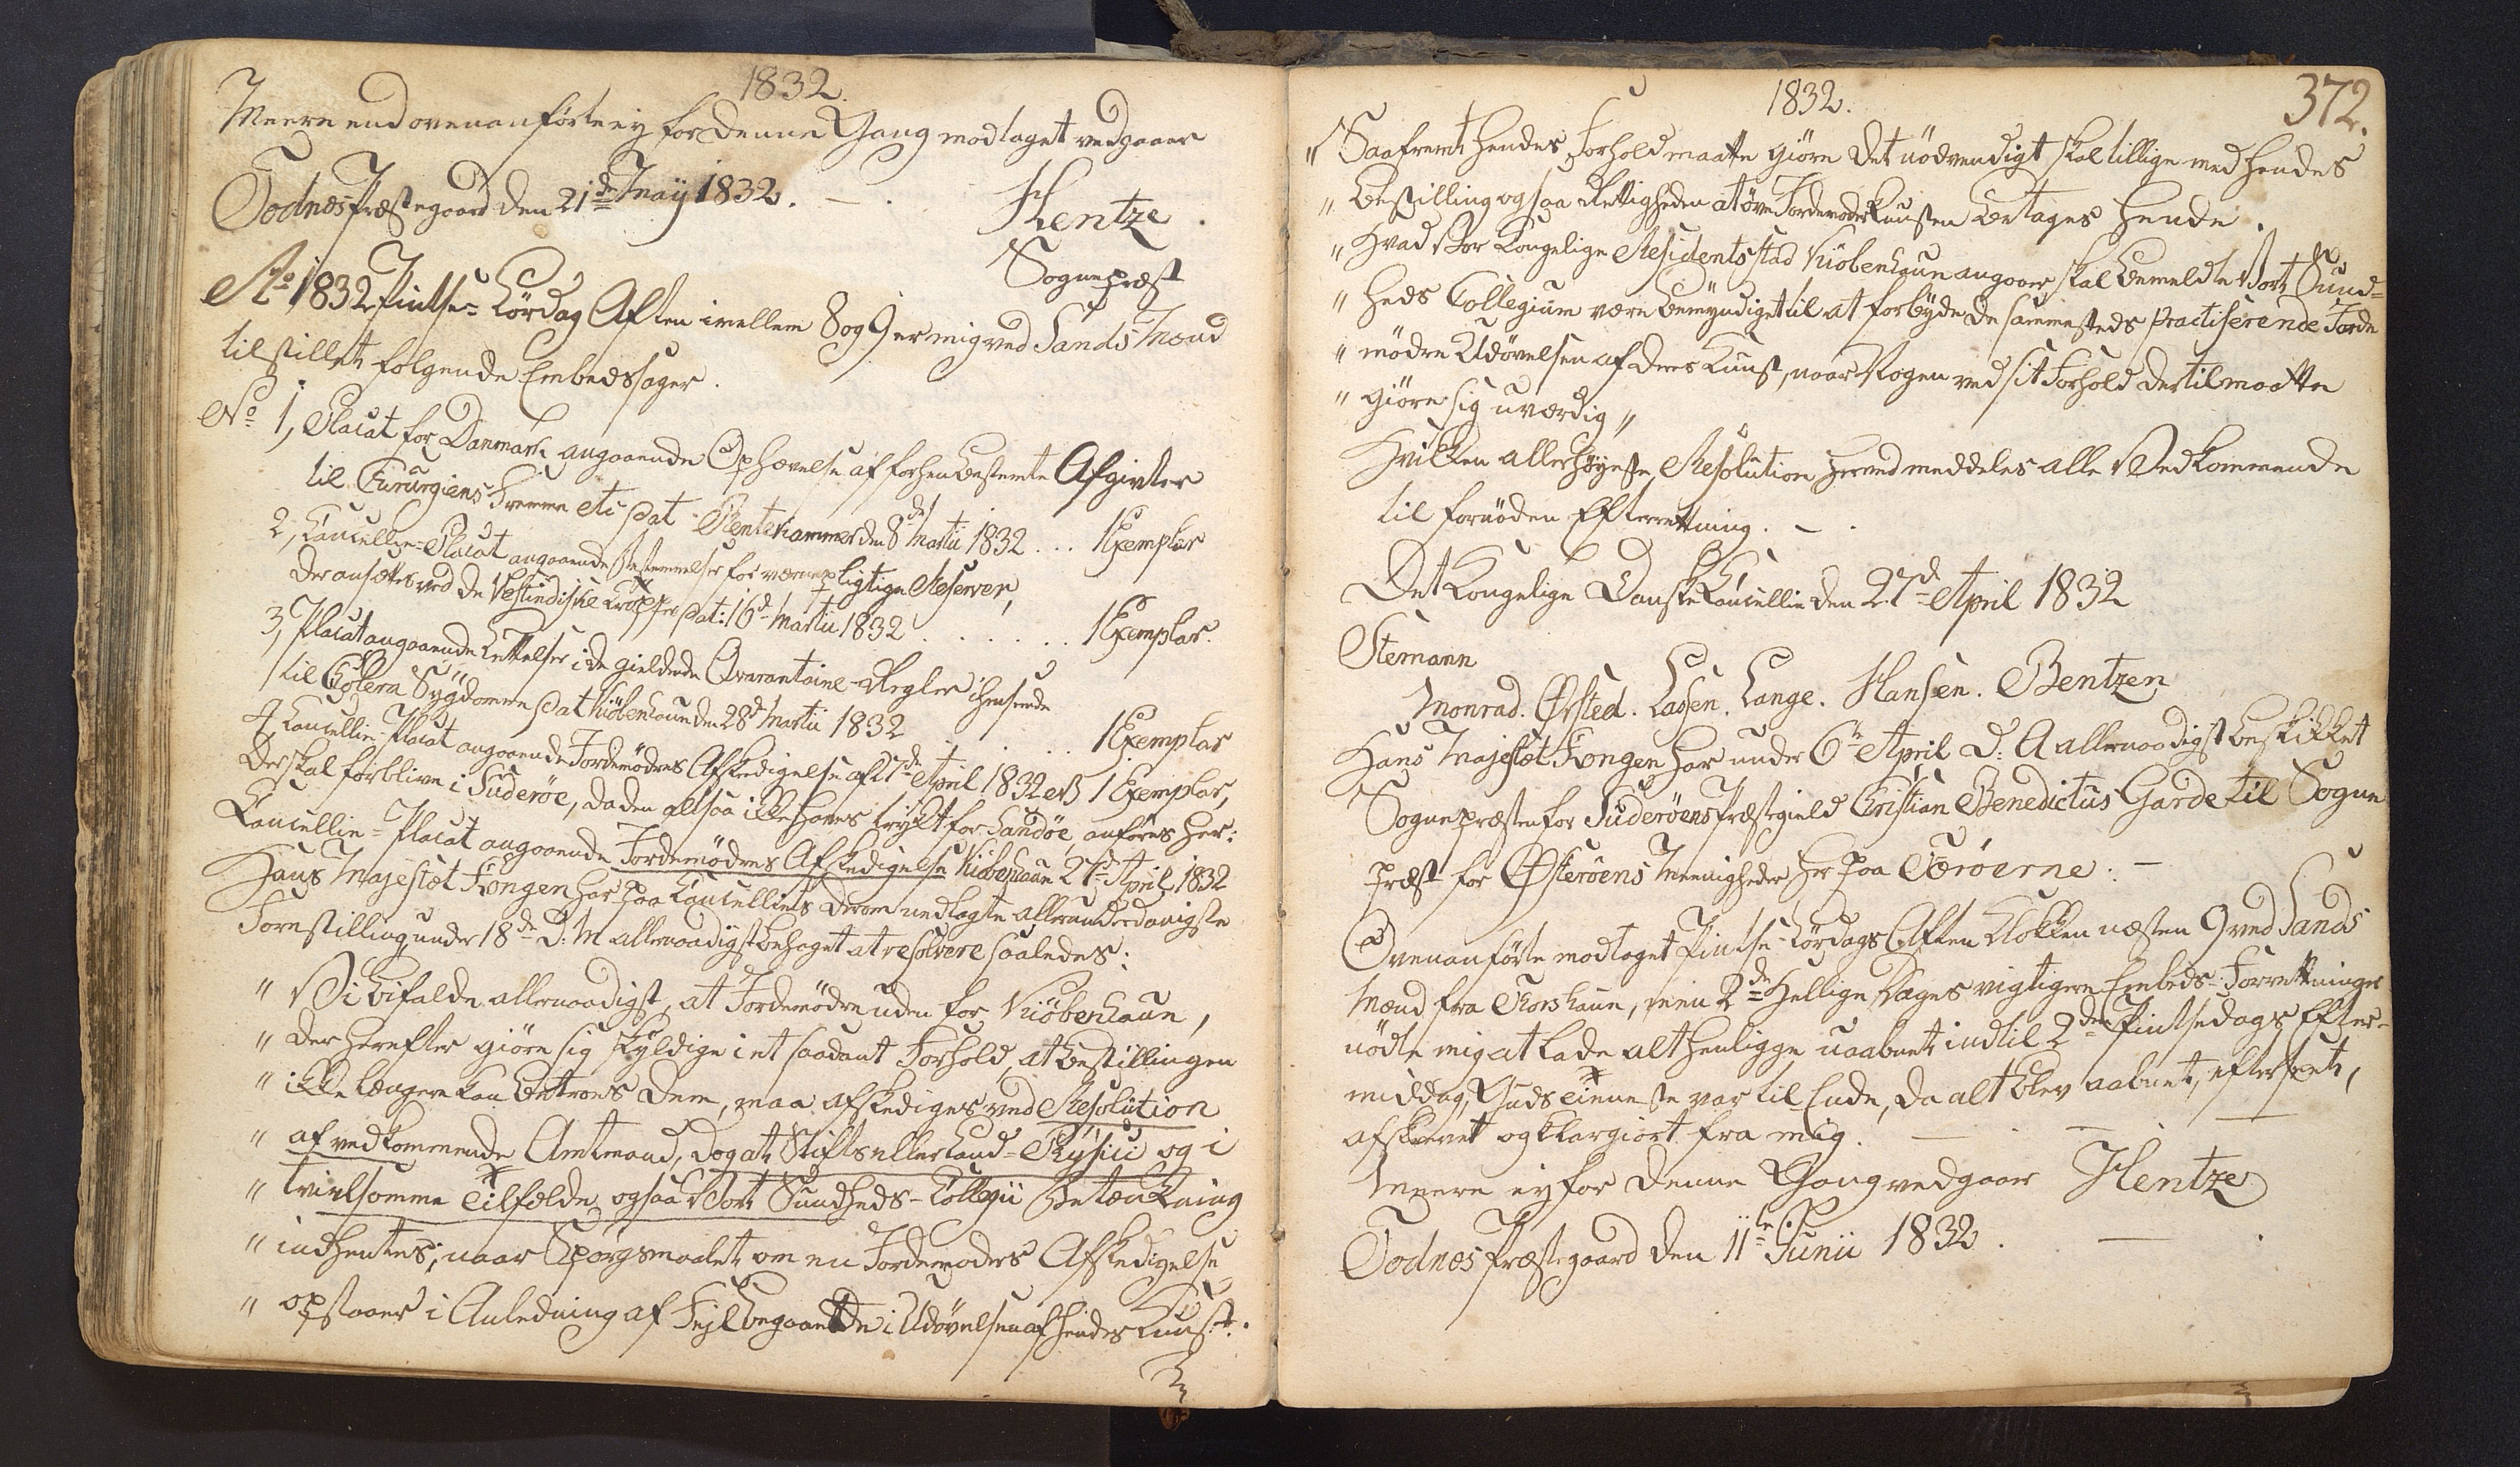 1832.
Meere end ovenanførte ey for denne Gang modtaget vedgaaer
Todnes Præstegaard den 21de Maij 1832. — . Hentze.
Sognepræst
Ao 1832 Pintse-Lørdag Aften imellem 8 og 9 er mig ved Sands Mænd
tilstillet følgende Embedssager.
No 1, Placat for Danmark angaaende Ophævelse af forhen bestemte Afgivter
til Chirurgiens Fremme etc dat Rentekammer den 8de Martii 1832 ... 1 Exemplar
2, Cancellie-Placat angaaende Bestemmelser for værnepligtige Reserver,
der ansættes ved de Vestindiske Tropper dat: 16d Martii 1832 . . . . . . 1 Exemplar.
3, Placat angaaende Lettelser i de gieldende Qvarantaine-Regler i henseende
til Cholera Sygdommen dat Kiøbenhavn den 28d Martii 1832 . . . . 1 Exemplar
4, Cancellie-Placat angaaende Jordemødres Afskedigelse af 27de April 1832 1 Exemplar,
der skal forblive i Suderøe, da den altsaa ikke haves trykt for Sandøe, anføres her:
Cancellie-Placat angaaende Jordemødres Afskedigelse Kiøbenhavn 27d April 1832
Hans Majestæt Kongen har paa Cancelliets derom nedlagte allerunderdanigste
Forestilling under 18de D: M allernaadigst behaget at resolvere saaledes:
" Vi bifalde allernaadigst, at Jordemødre uden for Kiøbenhavn,
" der herefter giøre sig skyldige i et saadant Forhold, at Bestillingen
" ikke længere kan betroes dem, maa afskediges ved Resolution
" af vedkommende Amtmand, dog at Stifts eller Land-Physici og i
" tvivlsomme Tilfælde ogsaa Vort Sundheds-Collegii Betænkning
" indhentes; naar Spørgsmaalet om en Jordemoders Afskedigelse
" opstaaer i Anledning af Fejl begaaede i Udøvelsen af hendes Kunst.
1832.
372.
" Saafremt hendes Forhold maatte giøre det nødvendigt skal tillige med hendes
" Bestilling ogsaa Rettigheden at øve Jordemoderkunsten betages hende.
" Hvad Vor Kongelige Residentsstad Kiøbenhavn angaaer skal bemeldte Vort Sund-
" heds Collegium være bemyndiget til at forbyde de sammesteds practiserende Jorde
" mødre Udøvelsen af deres Kunst, naar Nogen ved sit Forhold dertil maatte
" giøre sig uværdig "
Hvilken allerhøyeste Resolution herved meddeles alle Vedkommende
til fornøden Efterretning. — .
Det Kongelige Danske Cancellie den 27d April 1832
Stemann
Monrad. Ørsted. Lassen. Lange. Hansen. Bentzen
Hans Majestæt Kongen har under 6te April D: A allernaadigst beskikket
Sognepræsten for Suderøens Præstegield Christian Benedictus Garde til Sogne
præst for Østerøens Menigheder her paa Færøerne: —
Ovenanførte modtaget Pintse-Lørdags Aften Klokken næsten 9 ved Sands
Mænd fra Thorshavn, men 2de Hellige Dages vigtigere Embeds-Forrettninger
nødte mig at lade alt henligge uaabnet indtil 2den Pintsedags Efter-
middag, Guds tieneste var til Ende, da alt blev aabnet, efterseet,
afskrevet og klargiort fra mig. — . — . —
Meere ey for denne Gang vedgaaer Hentze
Todnes Præstegaard den 11te Junii 1832. — .